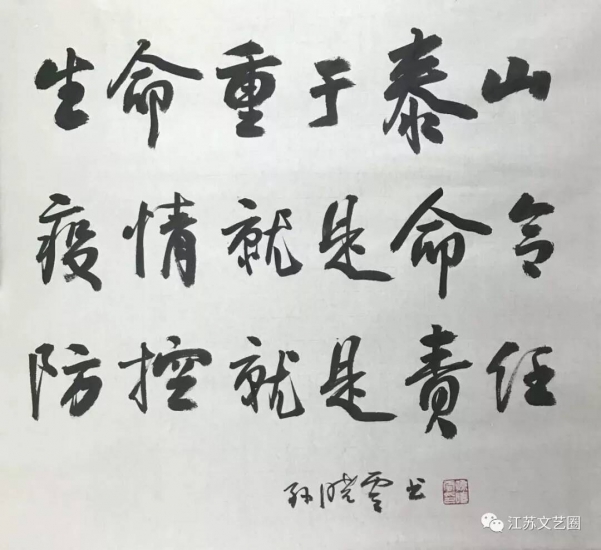 生命重于泰山
疫情就是命令
防控就是責任
孙晓雲书
江苏文艺圈